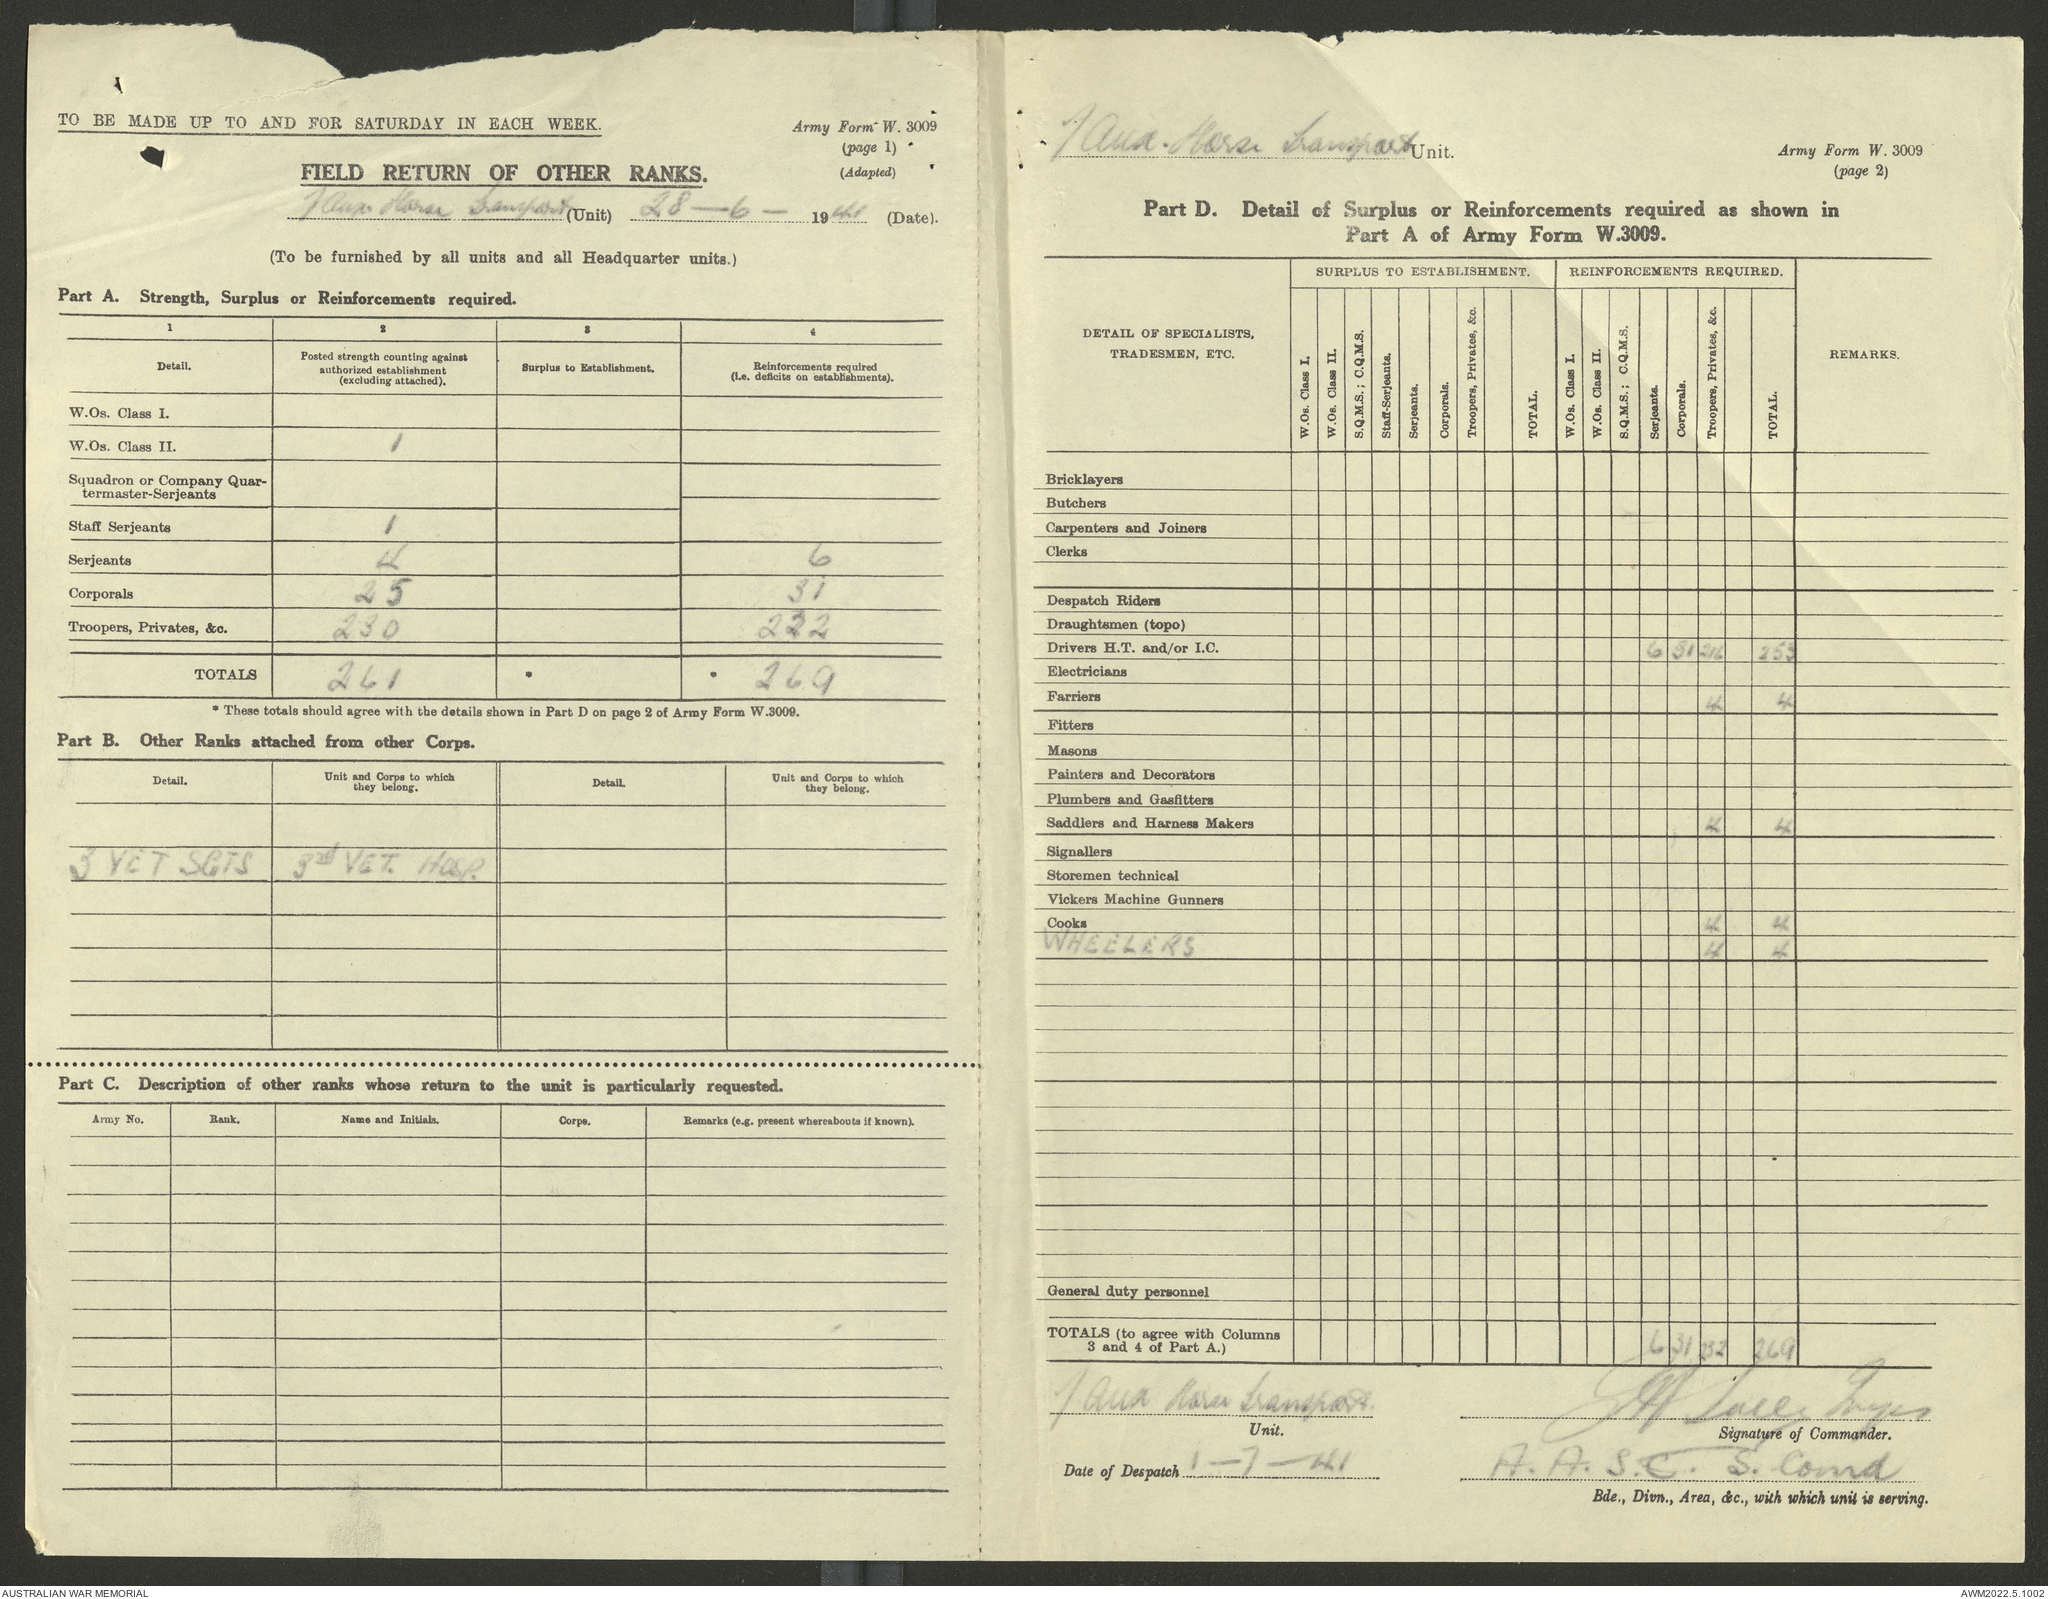 TO BE MADE UP TO AND FOR SATURDAY IN EACH WEEK.
Army Form W. 3009
(page 1)
(Adapted)
FIELD RETURN OF OTHER RANKS.
1 Aux Horse Transport (Unit) 28-6-1941 (Date).
(To be furnished by all units and all Headquarter units.)
Part A. Strength, Surplus or Reinforcements required.
1 2 3 4
Detail.
Posted strength counting against
authorized establishment
(excluding attached).
Surplus to Establishment.
Reinforcements required
(i.e. deficits on establishments).
W.Os. Class I.
W.Os. Class II. 1
Squadron or Company Quar-
termaster-Serjeants
Staff Serjeants 1
Serjeants 4 6
Corporals 25 31
Troopers, Privates, &c. 230 232
TOTALS 261 * * 269
* These totals should agree with the details shown in Part D on page 2 of Army Form W.3009.
Part B. Other Ranks attached from other Corps.
Detail.
Unit and Corps to which
they belong.
Detail.
Unit and Corps to which
they belong.
3 VET SGTS 3rd VET. HOSP.
Part C. Description of other ranks whose return to the unit is particularly requested.
Army No. Rank. Name and Initials. Corps. Remarks (e.g. present whereabouts if known).
1 Aux. Horse Transport Unit.
Army Form W. 3009
(page 2)
Part D. Detail of Surplus or Reinforcements required as shown in
Part A of Army Form W.3009.
DETAIL OF SPECIALISTS,
TRADESMEN, ETC.
SURPLUS TO ESTABLISHMENT.
REINFORCEMENTS REQUIRED.
REMARKS.
W.Os. Class I.
W.Os. Class II.
S.Q.M.S.; C.Q.M.S.
Staff-Serjeants.
Serjeants.
Corporals.
Troopers, Privates, &c.
TOTAL.
W.Os. Class I.
W.Os. Class II.
S.Q.M.S.; C.Q.M.S.
Serjeants.
Corporals.
Troopers, Privates, &c.
TOTAL.
Bricklayers
Butchers
Carpenters and Joiners
Clerks
Despatch Riders
Draughtsmen (topo)
Drivers H.T. and/or I.C. 6 31 216 253
Electricians
Farriers 4 4
Fitters
Masons
Painters and Decorators
Plumbers and Gasfitters
Saddlers and Harness Makers 4 4
Signallers
Storemen technical
Vickers Machine Gunners
Cooks 4 4
WHEELERS 4 4
General duty personnel
TOTALS (to agree with Columns
3 and 4 of Part A.) 6 31 232 269
1 Aux Horse Transport.
Unit.
Signature of Commander.
Date of Despatch 1-7-41
A.A.S.C. S. Comd
Bde., Divn., Area, &c., with which unit is serving.
AUSTRALIAN WAR MEMORIAL
AWM2022.5.1002